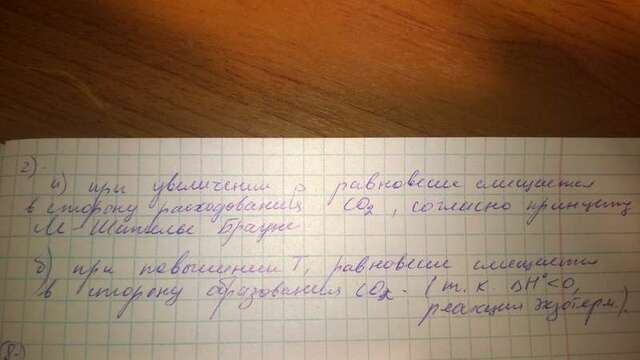 2).
а) при увеличении p равновесие смещается
в сторону расходования CO₂, согласно принципу
Ле Шателье Брауна
б) при повышении T, равновесие смещается
в сторону образования CO₂. (т.к. ΔH°<0,
реакция экзотерм.).